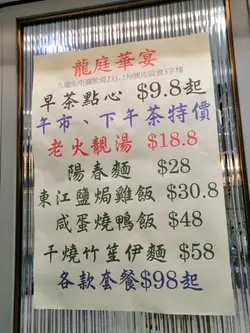 龍庭華宴
九龍尖沙咀彌敦道233-239號佐敦會3字樓
早茶點心 $9.8起
午市、下午茶特價
老火靚湯 $18.8
陽春麵 $28
東江鹽焗雞飯 $30.8
咸蛋燒鴨飯 $48
干燒竹笙伊麵 $58
各款套餐 $98起